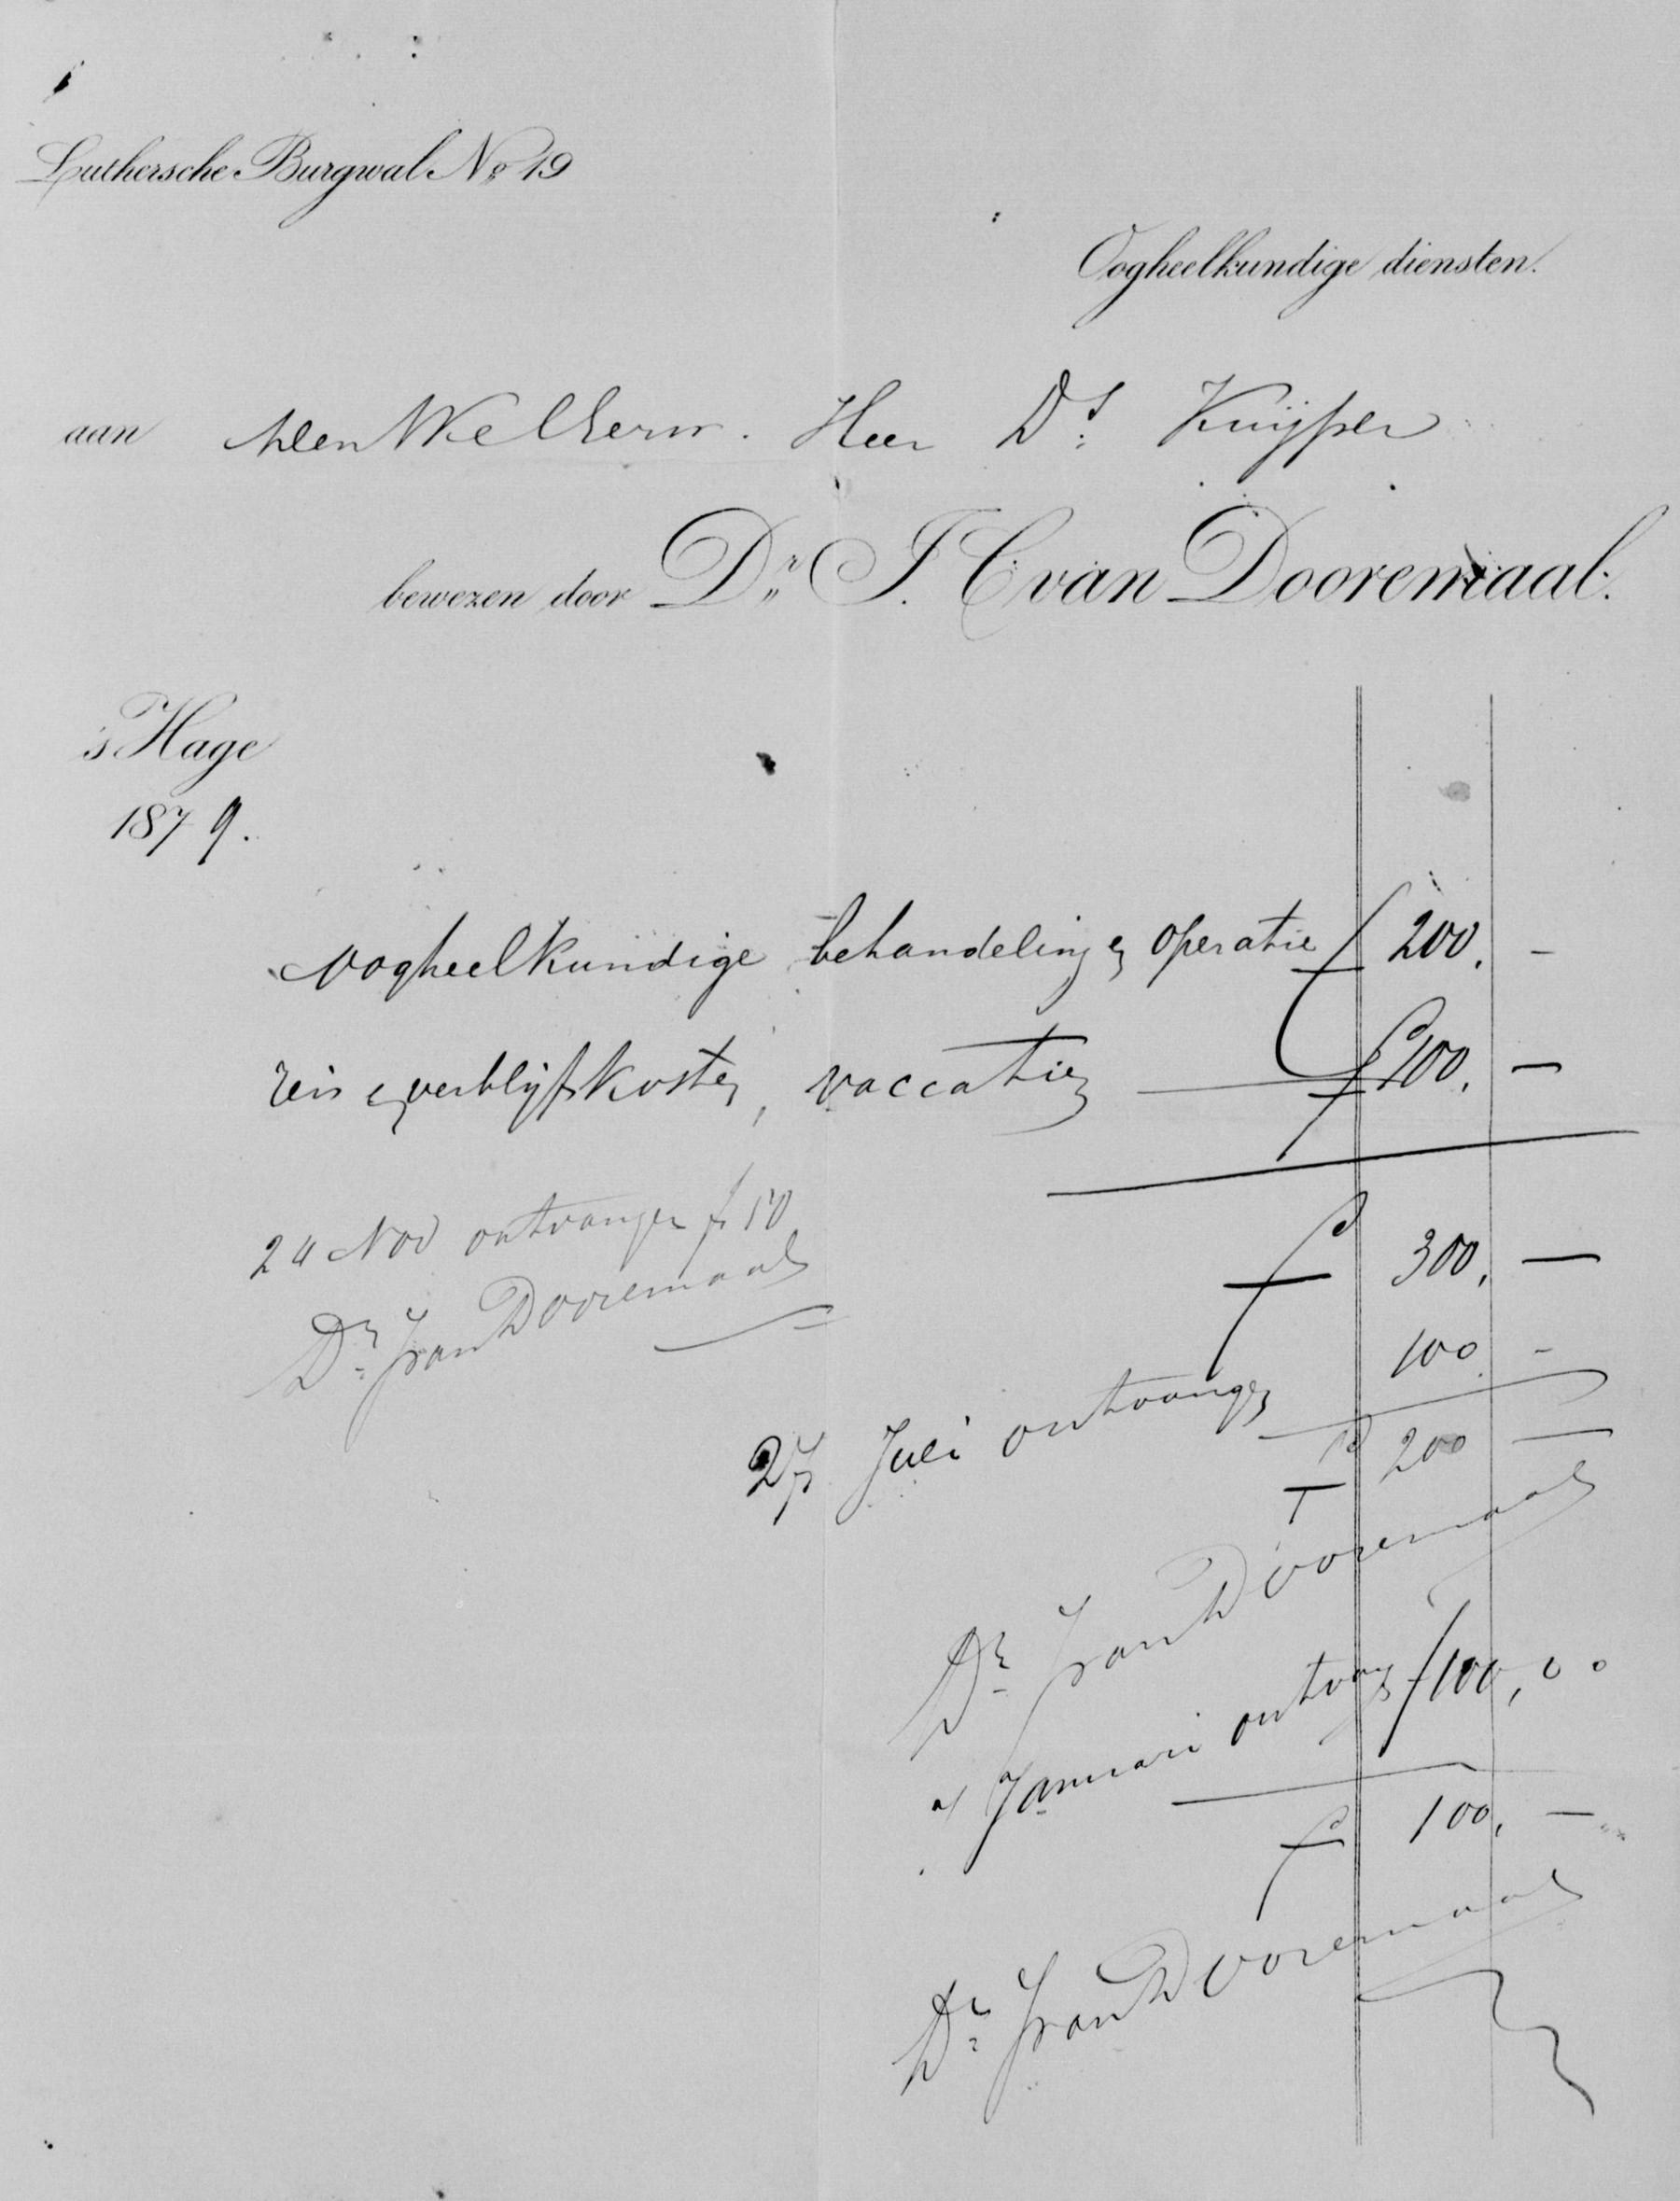 Luthersche Burgwal No 19
Oogheelkundige diensten.
aan den WelEerw. Heer Ds: Kuijper
bewezen door Dr. J. C van Dooremaal.
's Hage
1879.
oogheelkundige behandeling en operatie f 200. -
reis en verblijfkosten, vaccatien f 100. -
f 300. -
24 Nov ontvangen f 50
Dr: JvanDooremaal
100 -
27 Juli ontvangen
f 200 -
Dr JvanDooremaal
Januari ontvang f 100,00
f 100, -
Dr: JvanDooremaal